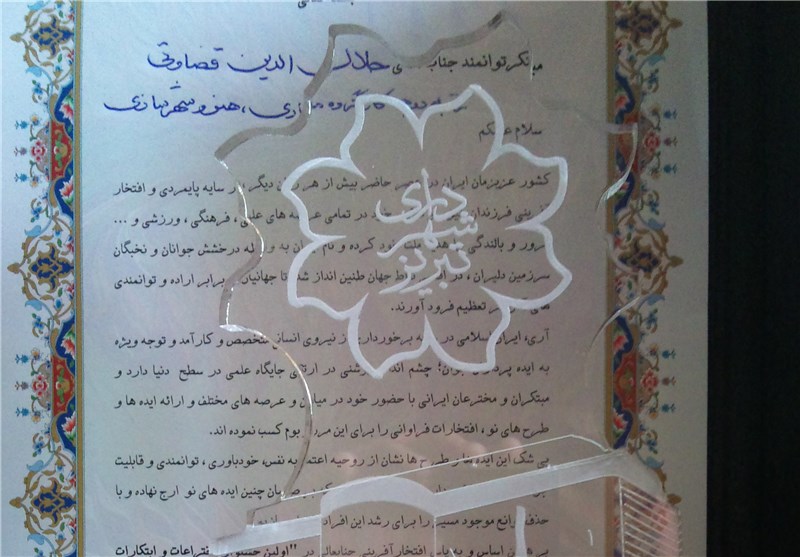 مبتکر توانمند جناب آقای جلال الدین قضاوتی
رتبه دوم کارگروه معماری، هنر و شهرسازی
سلام علیکم
کشور عزیزمان ایران در عصر حاضر بیش از هر زمان دیگر در سایه پایمردی و افتخار
آفرینی فرزندان خود در تمامی عرصه های علمی، فرهنگی، ورزشی و ...
غرور و بالندگی ملت خود کرده و نام ایران به وسیله درخشش جوانان و نخبگان
سرزمین دلیران، در اقصی نقاط جهان طنین انداز شد تا جهانیان در برابر اراده و توانمندی
های آنان سر تعظیم فرود آورند.
آری، ایران اسلامی در سایه برخورداری از نیروی انسانی متخصص و کارآمد و توجه ویژه
به ایده پردازان جوان؛ چشم انداز روشنی در ارتقای جایگاه علمی در سطح دنیا دارد و
مبتکران و مخترعان ایرانی با حضور خود در میادین و عرصه های مختلف و ارائه ایده ها و
طرح های نو، افتخارات فراوانی را برای این مرز و بوم کسب نموده اند.
بی شک این ایده ها و طرح ها نشان از روحیه اعتماد به نفس، خودباوری، توانمندی و قابلیت
چنین ایده های نو ارج نهاده و با
حذف موانع موجود مسیر را برای رشد این افراد
بر همین اساس و به پاس افتخارآفرینی جنابعالی در "اولین جشنواره اختراعات و ابتکارات
شهرداری
تبریز